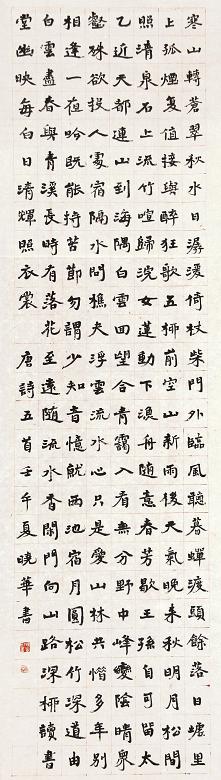 寒山轉蒼翠秋水日潺湲倚杖柴門外臨風聽暮蟬渡頭餘落日墟里
上孤煙复值接輿醉狂歌五柳前空山新雨後天氣晚来秋明月松間
照清泉石上流竹喧歸浣女蓮動下漁舟随意春芳歇王孫自可留太
乙近天都連山到海隅白雲回望合青靄入看無分野中峰變陰晴眾
壑殊欲投人處宿隔水問樵夫浮雲流水心只是愛山林共惜多年別
相逢一夜吟既能持苦節勿謂少知音憶就西池宿月圓松竹深道由
白雲盡春與青溪長時有落花至遠随流水香閑門向山路深柳讀書
堂幽映每白日清輝照衣裳 唐詩五首壬午夏曉華書